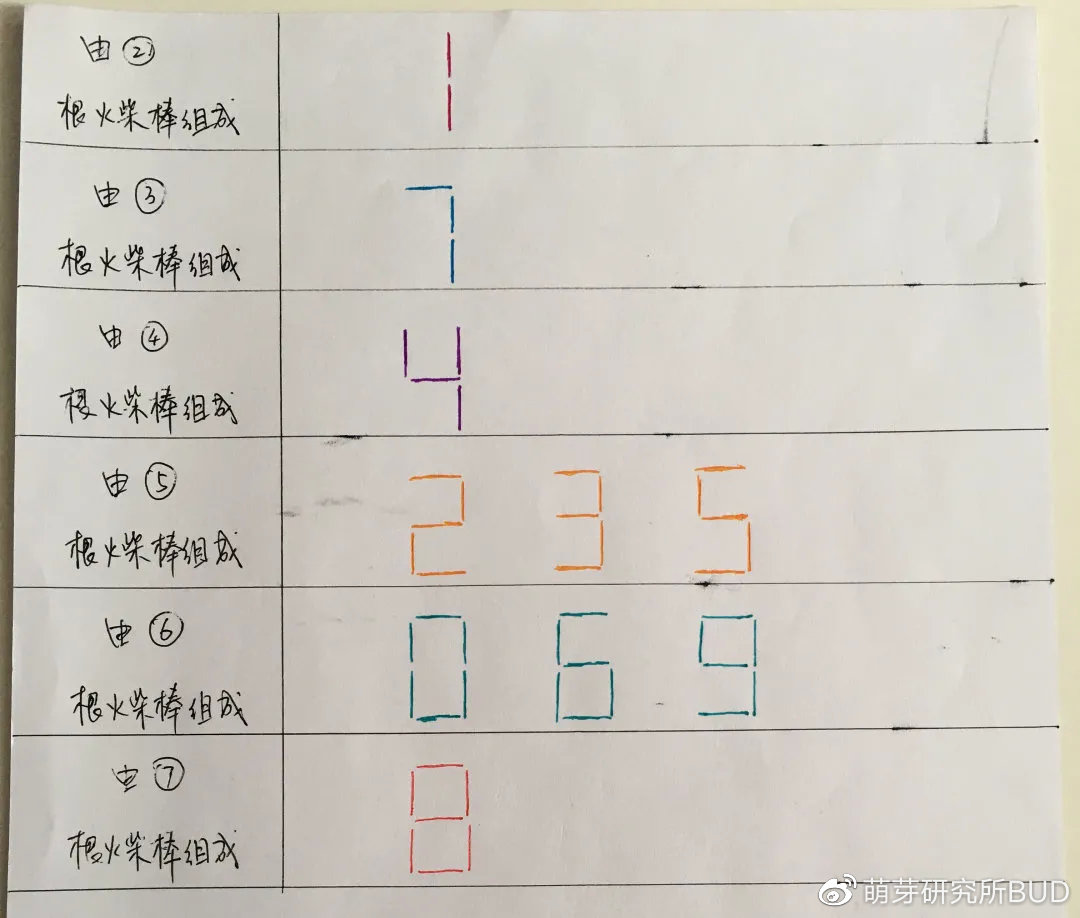 由②
根火柴棒组成
1
由③
根火柴棒组成
7
由④
根火柴棒组成
4
由⑤
根火柴棒组成
2 3 5
由⑥
根火柴棒组成
0 6 9
由⑦
根火柴棒组成
8
萌芽研究所BUD